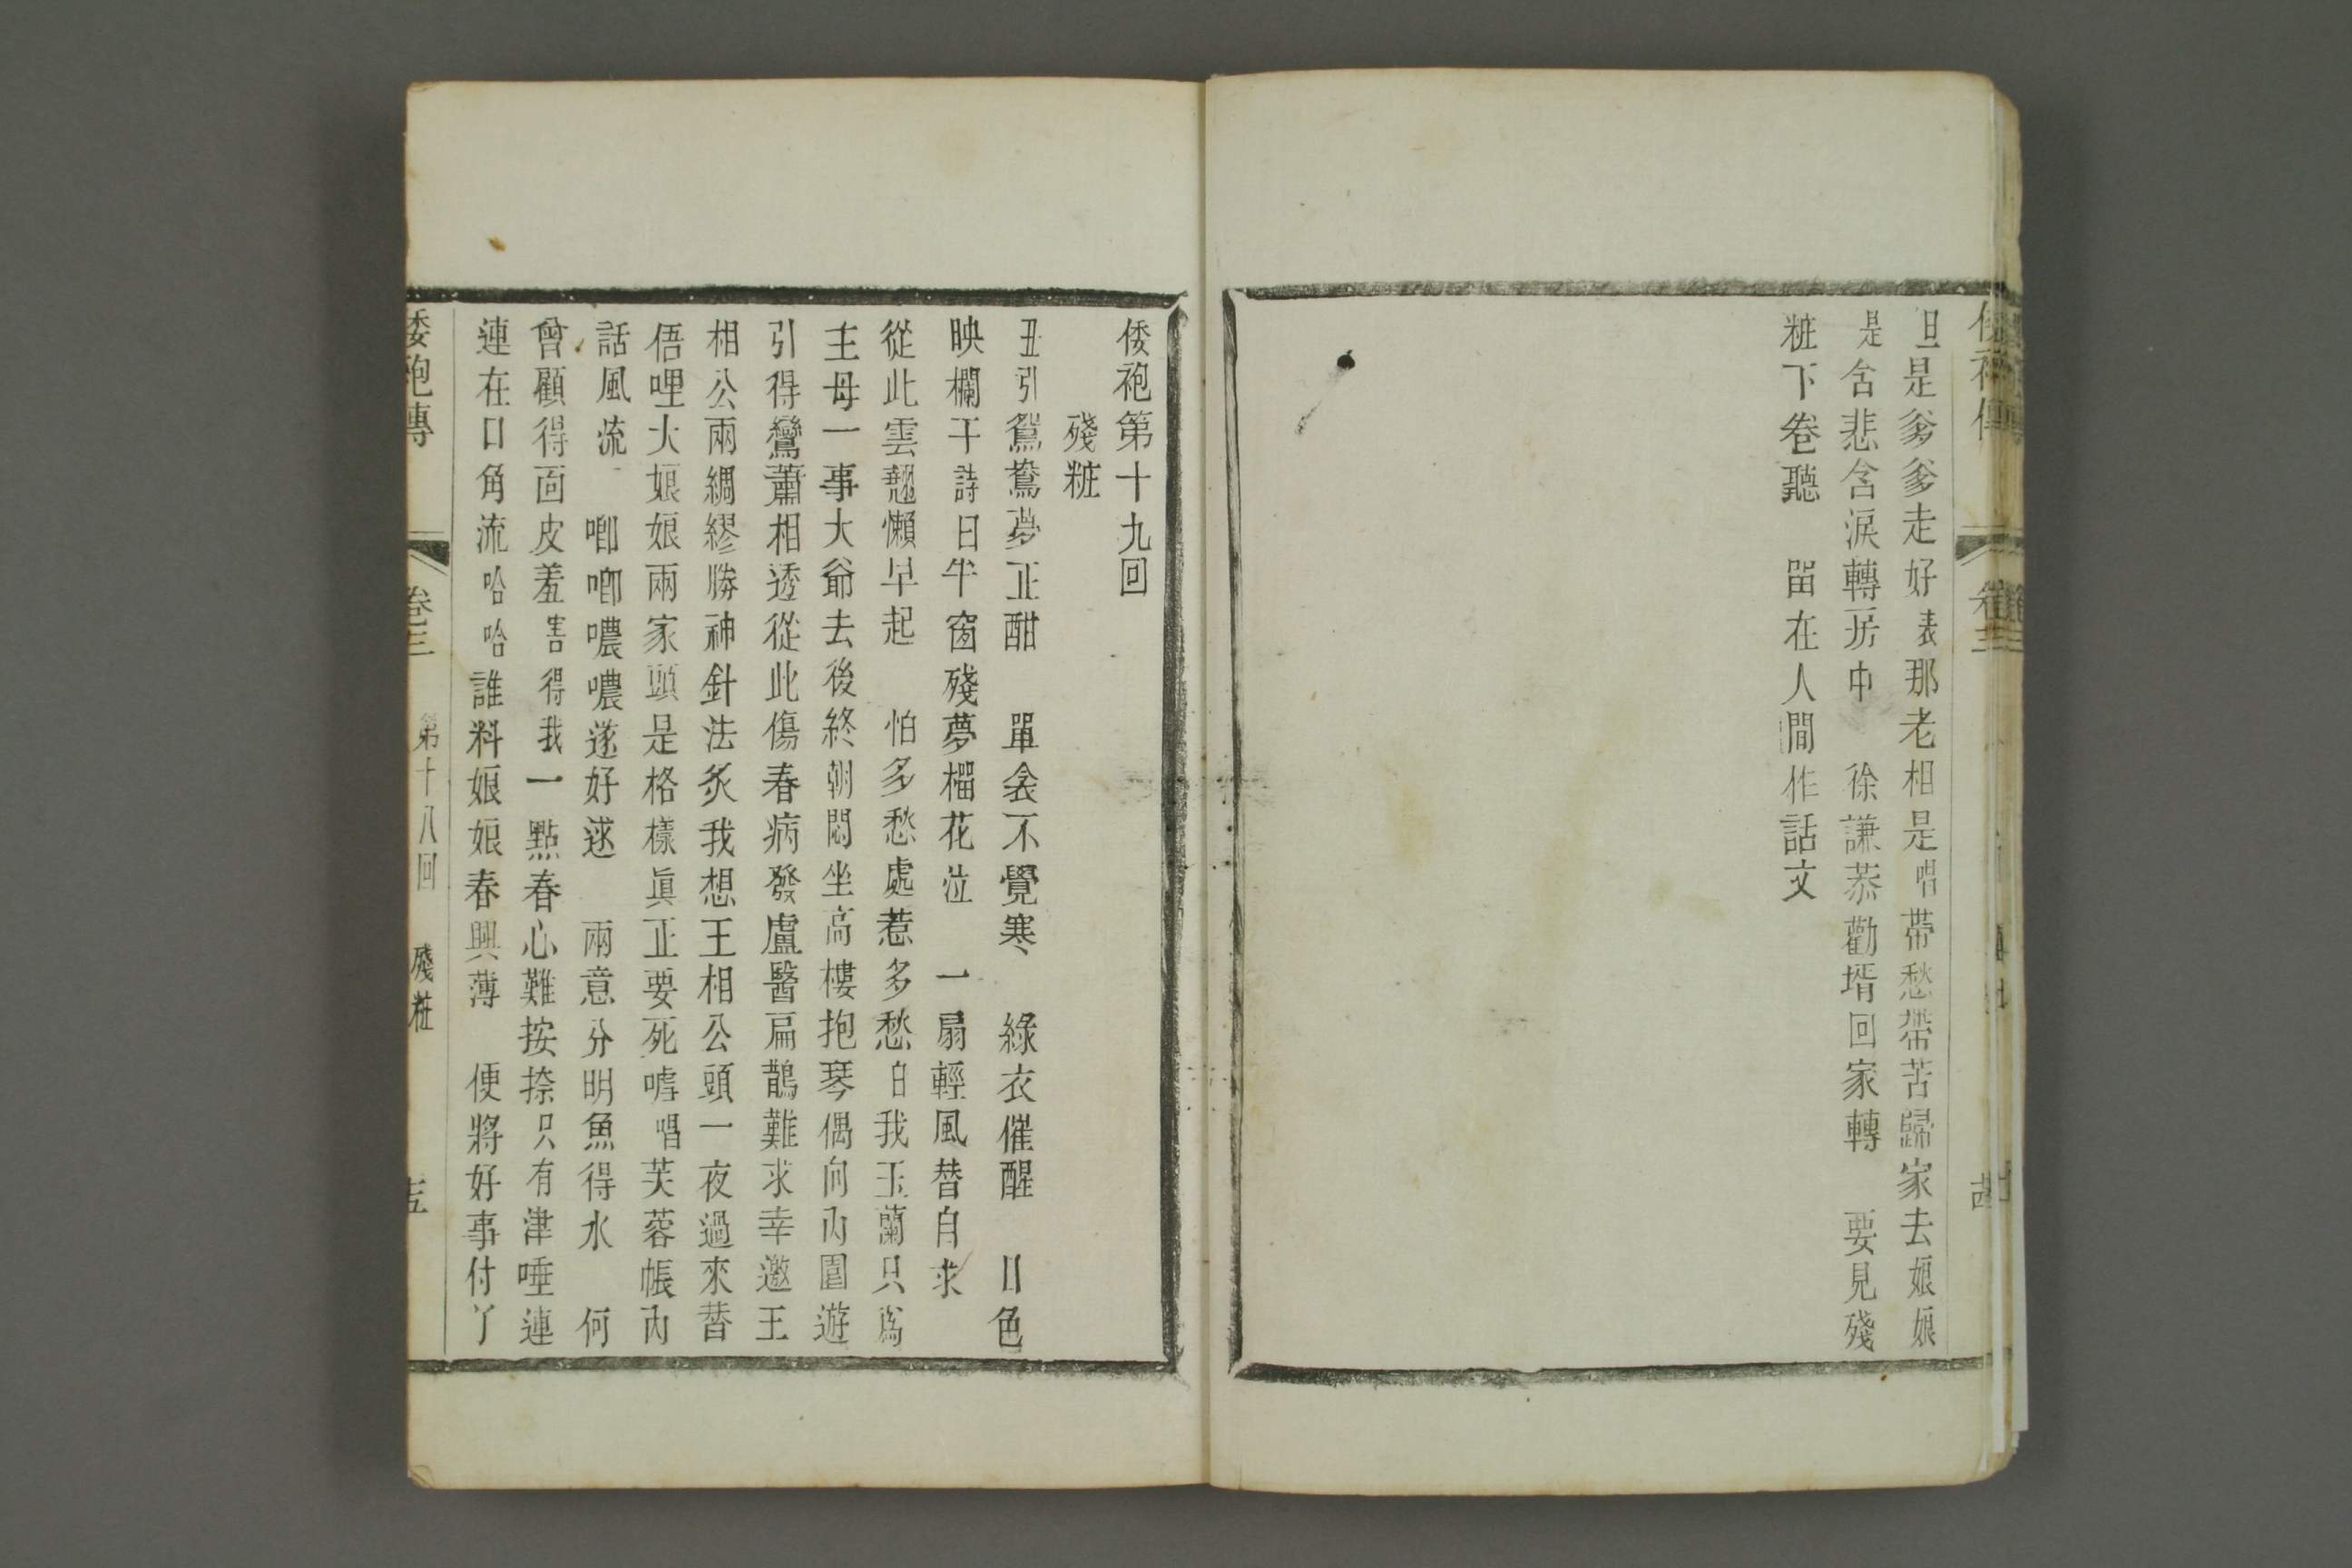 但是爹爹走好表那老相是唱帶愁帶苦歸家去娘娘
是含悲含淚轉房中　徐謙恭勸壻回家轉　要見殘
粧下卷聽　畱在人間作話文
倭袍第十九回
殘粧
丑引鴛鴦夢正酣　單衾不覺寒　綠衣催醒　日色
映欄干詩日半窗殘夢榴花泣　一扇輕風替自求
從此雲翹懶早起　怕多愁處惹多愁白我玉蘭只爲
主母一事大爺去後終朝悶坐高樓抱琴偶向內園遊
引得鸞蕭相透從此傷春病發盧醫扁鵲難求幸邀王
相公兩綢繆勝神針法炙我想王相公頭一夜過來替
俉哩大娘娘兩家頭是格樣眞正要死嘑唱芙蓉帳內
話風流　唧唧噥噥遂好逑　兩意分明魚得水　何
曾顧得面皮羞害得我一點春心難按捺只有津唾連
連在口角流哈哈誰料娘娘春興薄　便將好事付丫
倭袍傳　卷三　第十八回　殘粧　十五